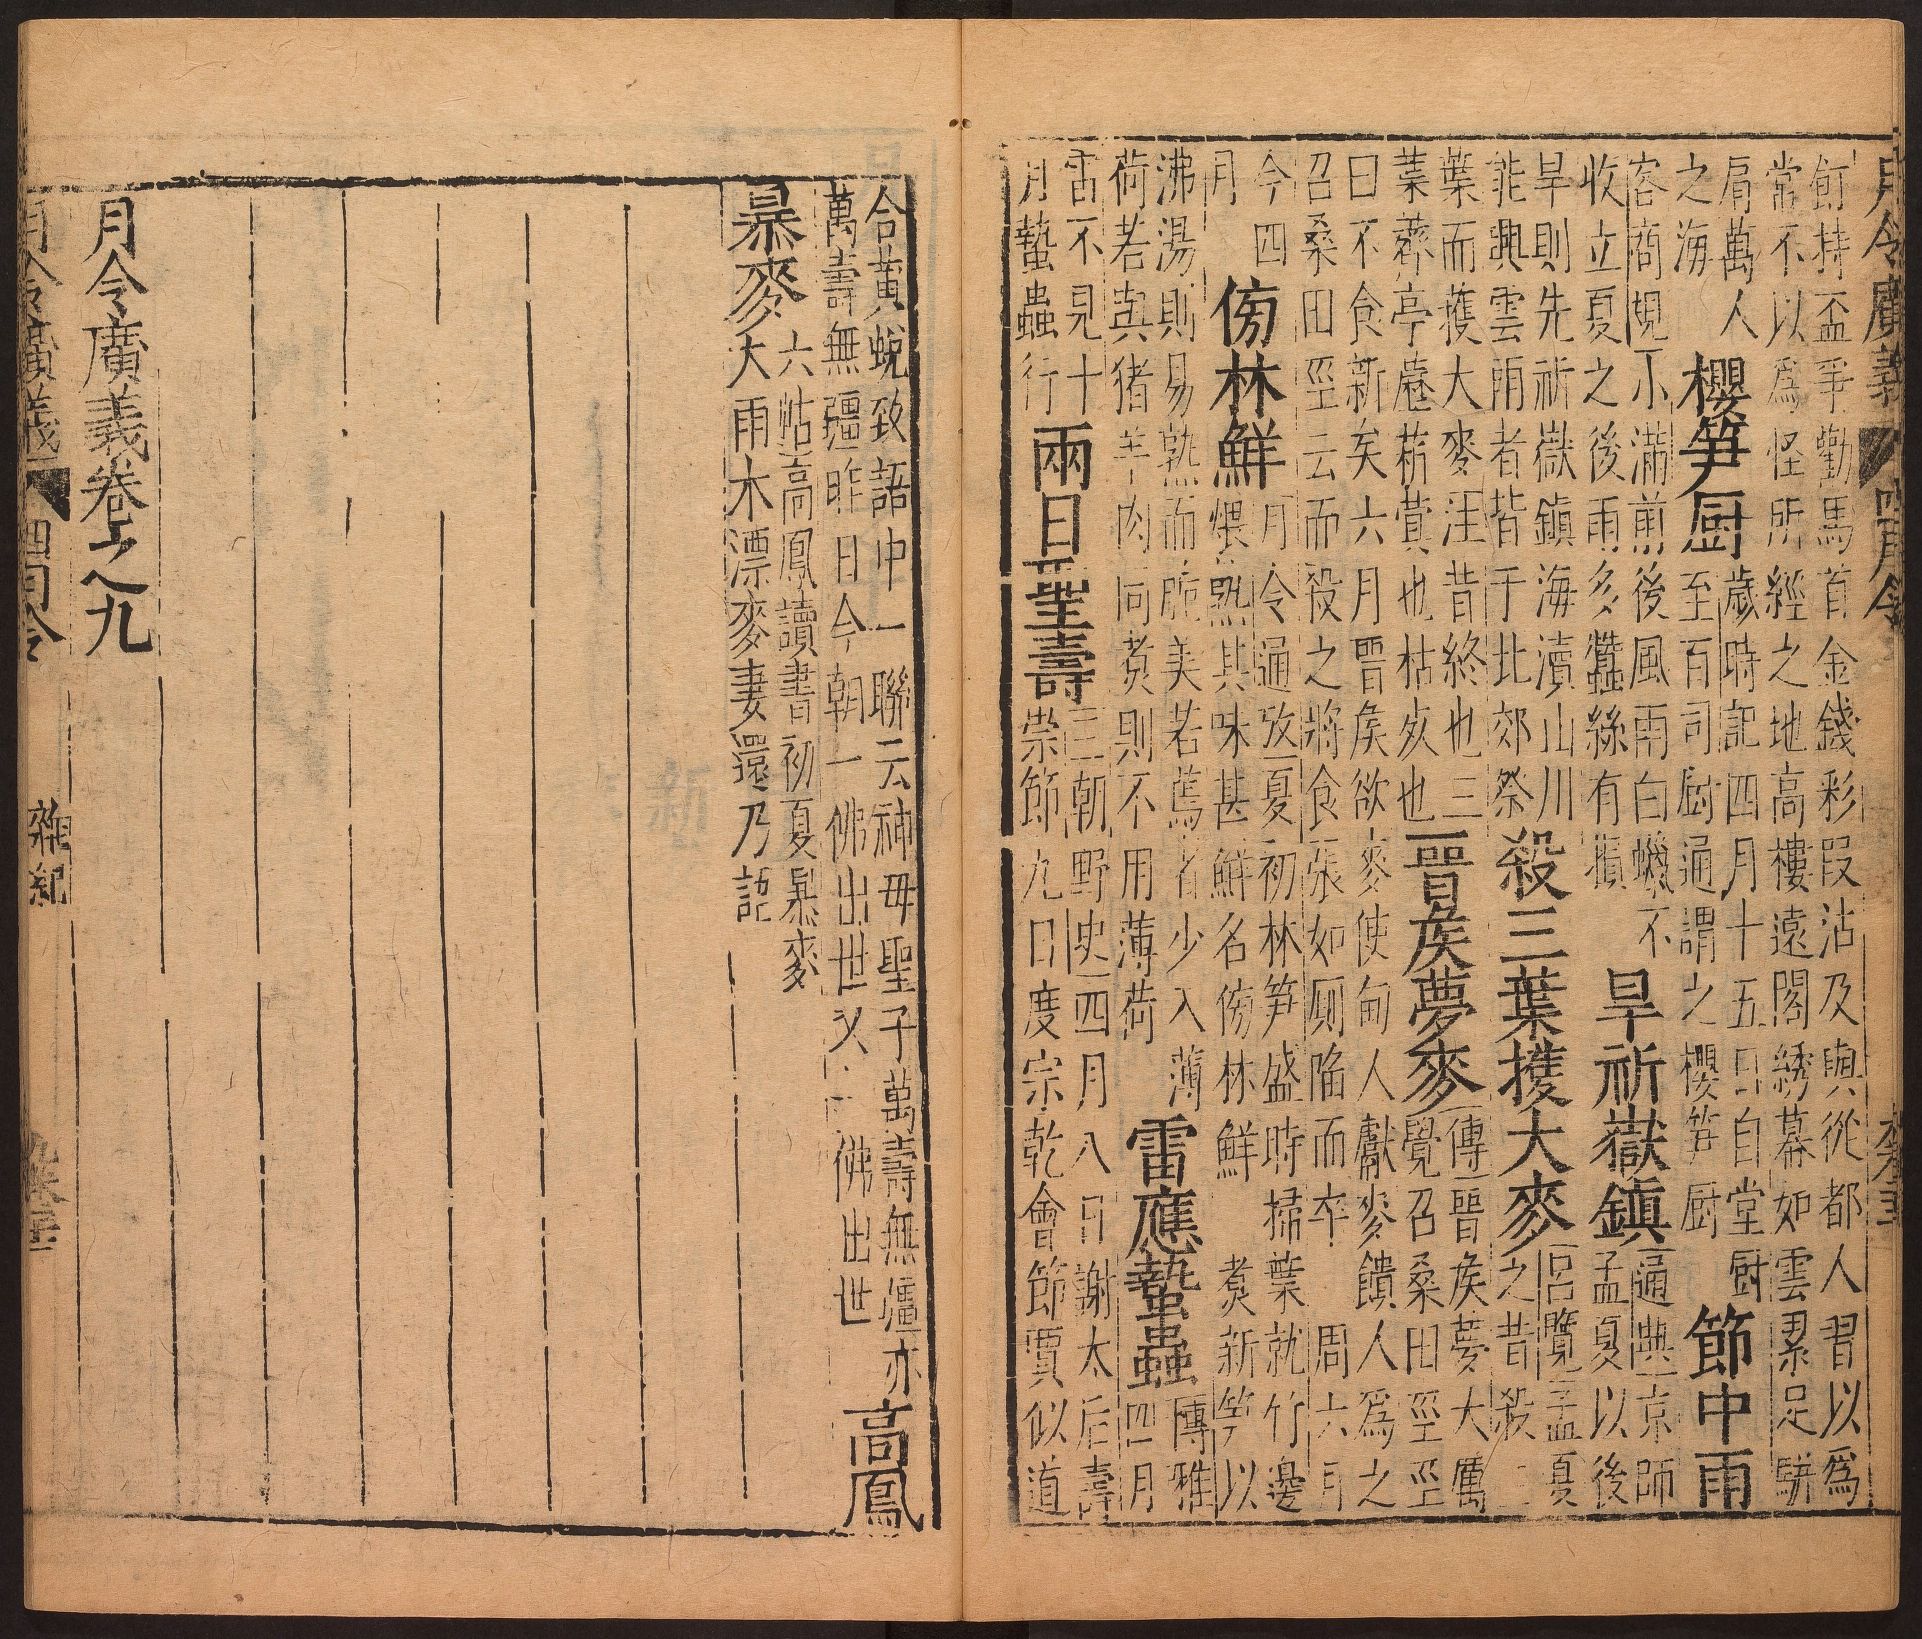 月令廣義 四月令
飣持盃爭勸馬首金錢彩叚沾及輿從都人習以爲
常不以爲怪所經之地高樓遠閣綉幕如雲累足騈
肩萬人
之海
櫻笋厨
歲時記四月十五日自堂厨
至百司厨通謂之櫻笋厨
節中雨
客商規不滿前後風雨白蠟不
收立夏之後雨多蠶絲有損
旱祈嶽鎮
通典京師
孟夏以後
旱則先祈嶽鎮海瀆山川
能興雲雨者皆于北郊祭
殺三葉獲大麥
吕覽孟夏
之昔殺三
葉而獲大麥注昔終也三
葉薺亭歷菥蓂也枯死也
晉矦夢麥
傳晉矦夢大厲
覺召桑田巫巫
曰不食新矣六月晉矦欲麥使甸人獻麥饋人爲之
召桑田巫云而殺之將食張如厠陷而卒 周六月
今四
月
傍林鮮
月令通攷夏初林笋盛時掃葉就竹邊
煨熟其味甚鮮名傍林鮮 煑新笋以
沸湯則易熟而脆美若蔫者少入薄
荷若與猪羊肉同煑則不用薄荷
雷應蟄蟲
博雅
四月
雷不見十
月蟄蟲行
兩日聖壽
三朝野史四月八日謝太后壽
崇節九日度宗乾會節賈似道
合黄蛻致語中一聯云神母聖子萬壽無疆亦
萬壽無疆昨日今朝一佛出世又一佛出世
高鳳
暴麥
六帖高鳳讀書初夏暴麥
大雨水漂麥妻還乃認
月令廣義卷之九
月令廣義 四月令 雜紀